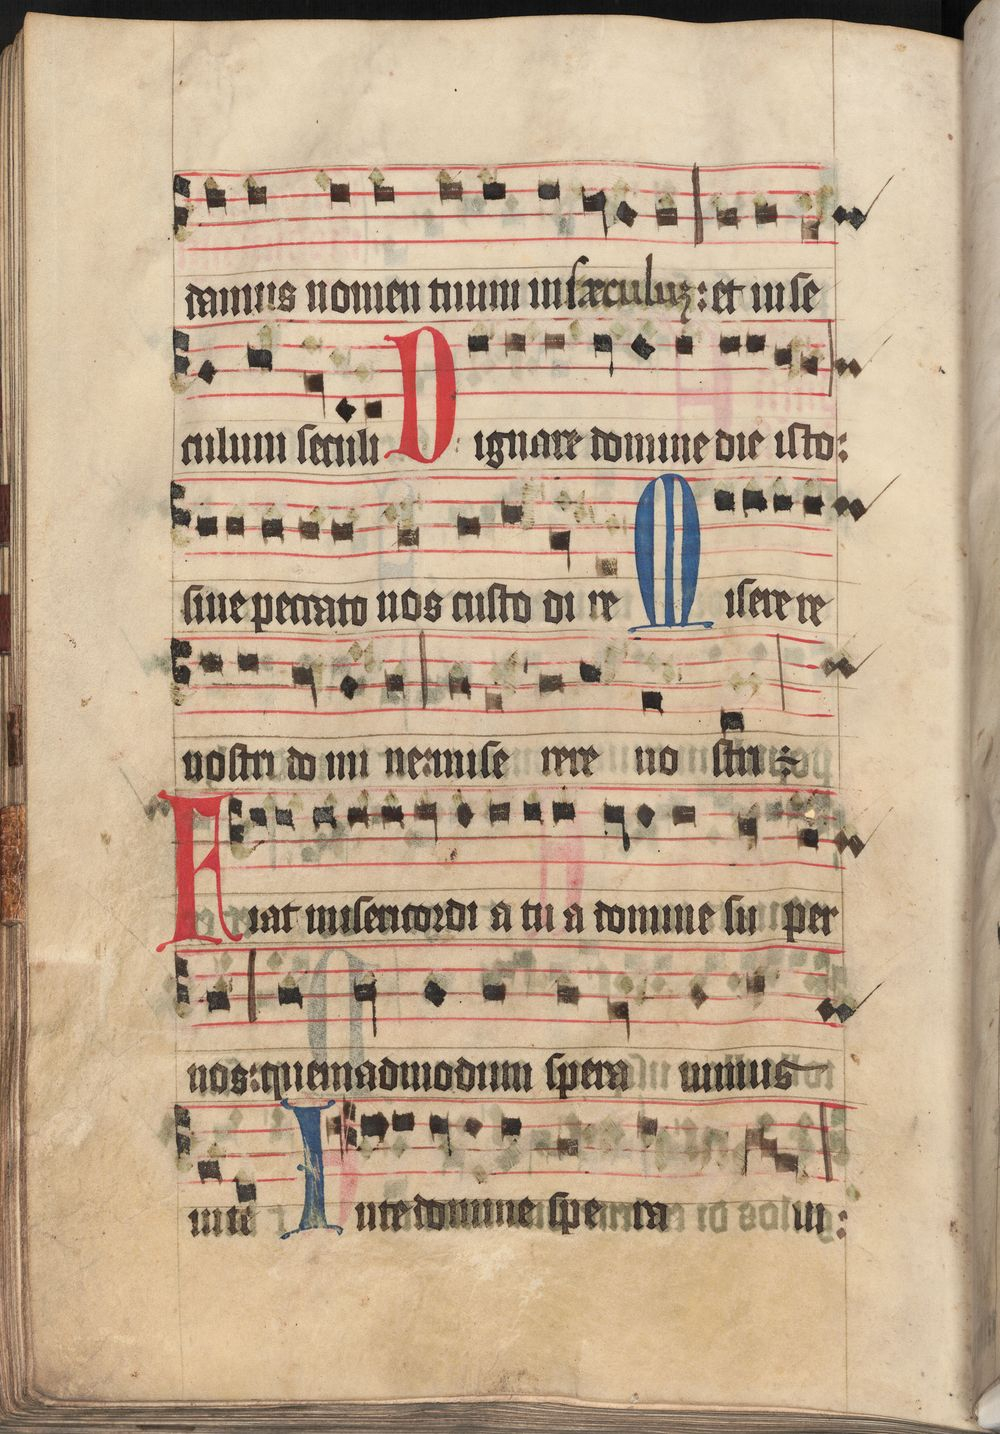 damus nomen tuum in sæculuz: et in se
culum seculi Dignare domine die isto:
sine peccato nos custo di re Miserere
nostri do mi ne: mise rere no stri
Fiat misericordi a tu a domine su per
nos: quemadmodum spera uimus
in te In te domine spe ra ui: